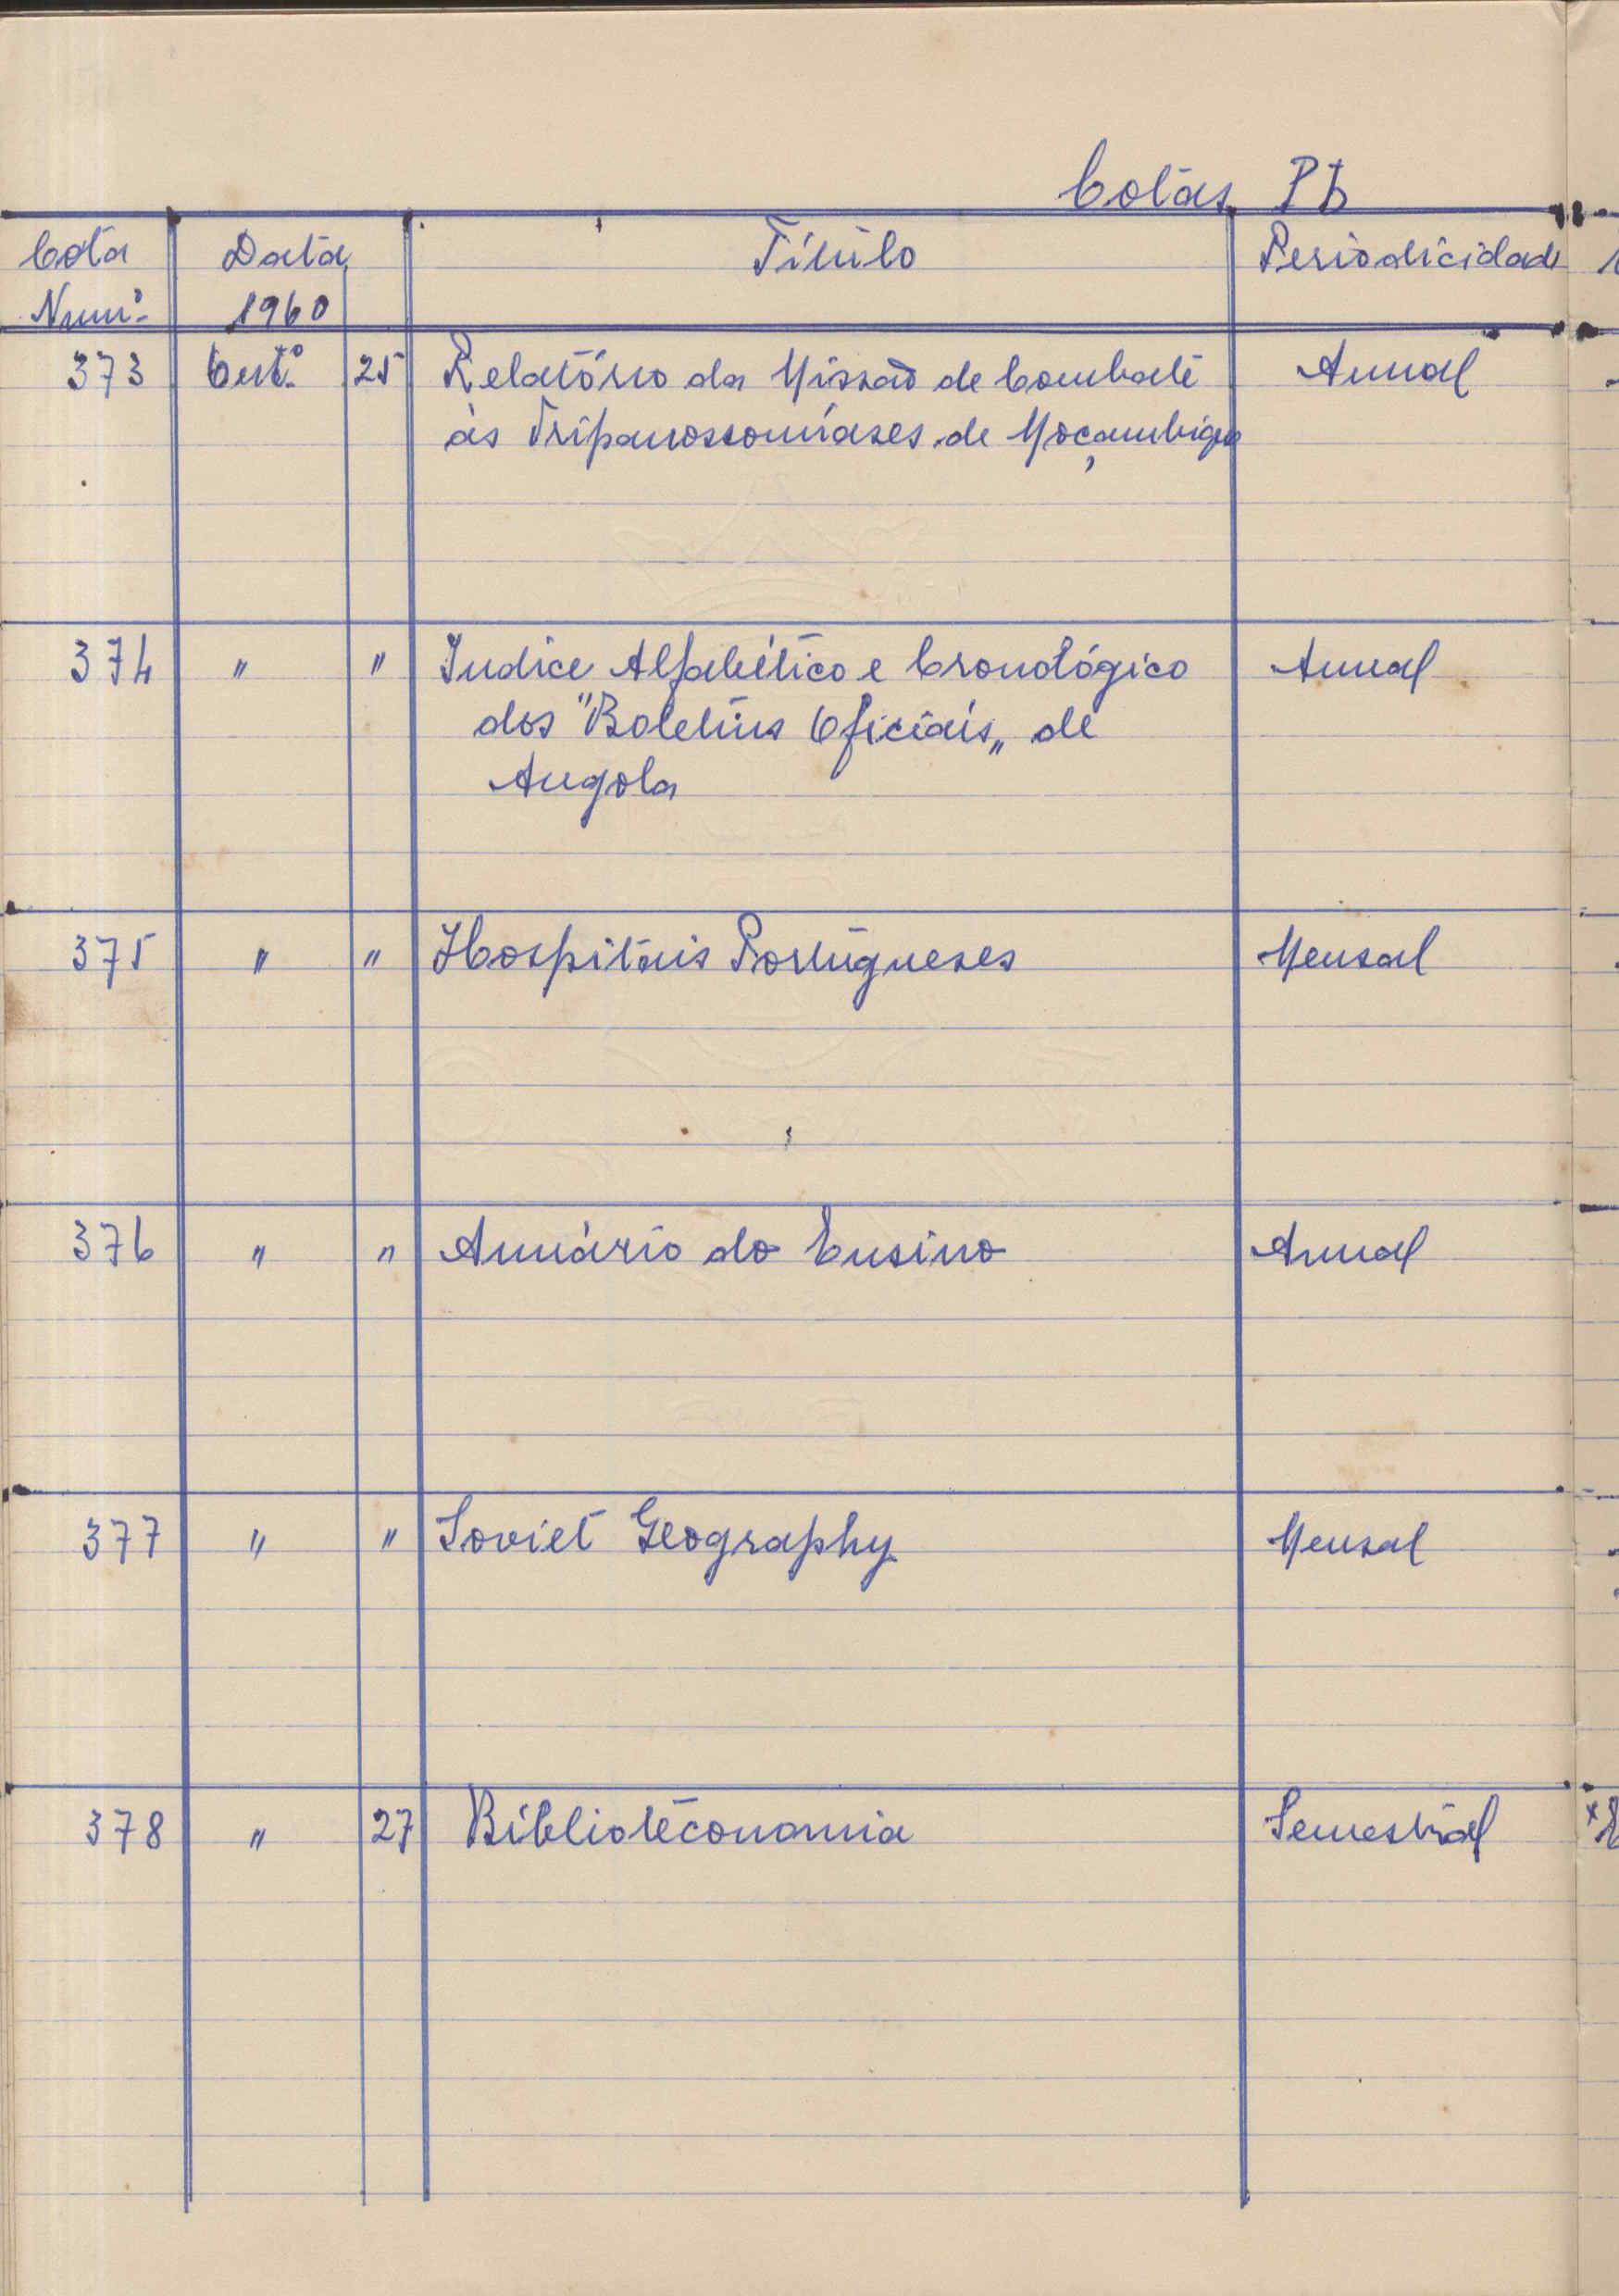 Cotas P b
Cota Data Título Periodicidade
Numº 1960
373 Outº 25 Relatório da Missão de Combate Annal
às Tripanossomíases de Moçambique
374 " " Indice Alfabético e Cronológico Annal
dos "Boletins Oficiais„ de
Angola
375 " " Hospitais Portugueses Mensal
376 " " Annário do Ensino Annal
377 " " Soviet Geography Mensal
378 " 27 Biblioteconomia Semestral